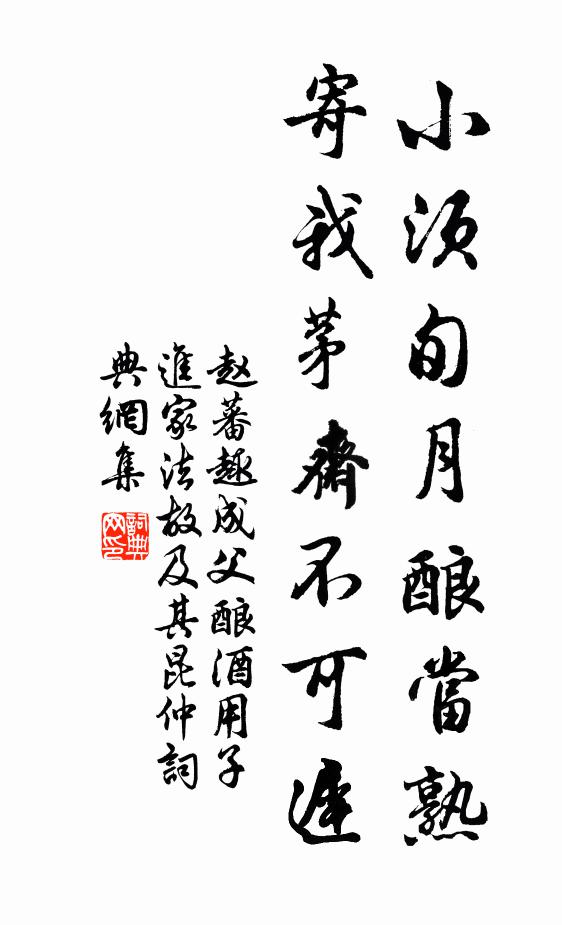 小须旬月酿當熟
寄我茅齋不可遲
赵蕃趣成父酿酒用子
進家法故及其昆仲詞
典網集
詞典
网印